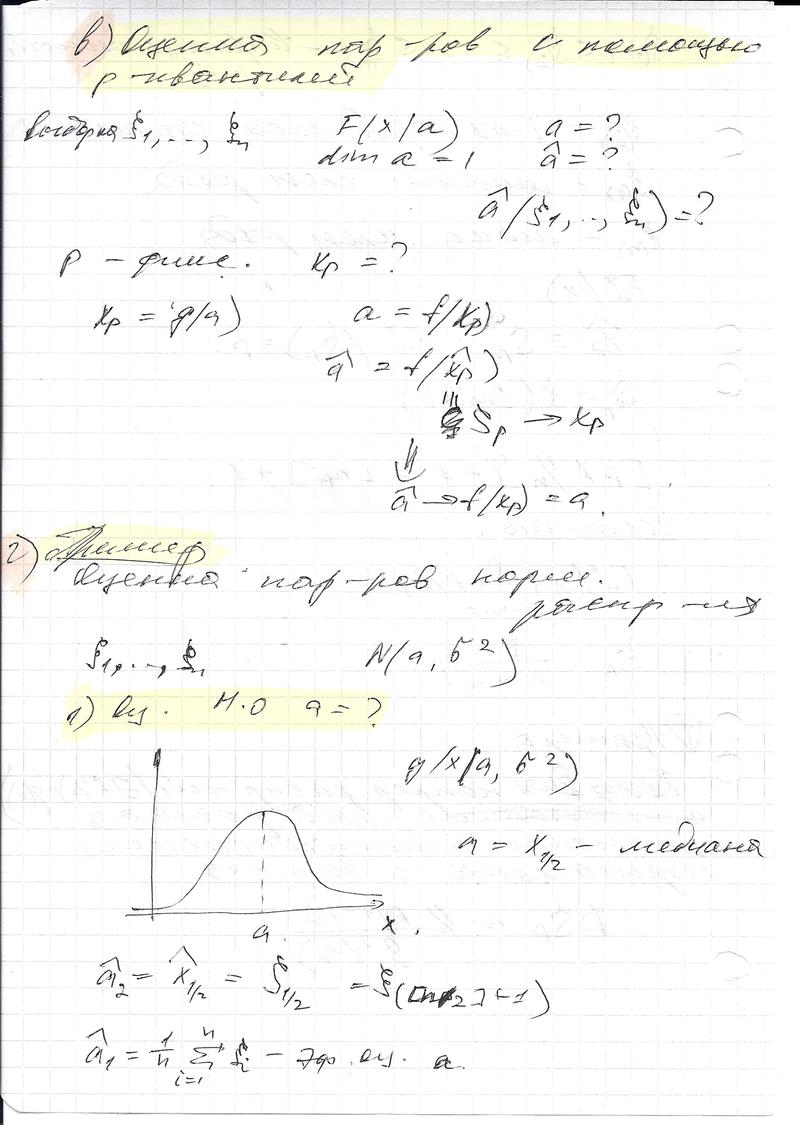 в) Оценка пар-ров с помощью
р-квантилей
выборка ξ₁, ..., ξₙ F(x|a) a = ?
dim a = 1 â = ?
â(ξ₁, .., ξₙ) = ?
p - фикс. xₚ = ?
xₚ = g(a) a = f(xₚ)
â = f(x̂ₚ)
ζₚ → xₚ
⇓
â → f(xₚ) = a.
г) Пример
Оценка пар-ров норм.
распр-ия
ξ₁, ..., ξₙ N(a, σ²)
1) оц. м.о a = ?
g(x|a, σ²)
a = x₁/₂ - медиана
a x.
â₂ = x̂₁/₂ = ζ₁/₂ = ξ([n/2]+1)
â₁ = 1/n Σⁿᵢ₌₁ ξᵢ - эф. оц. a.